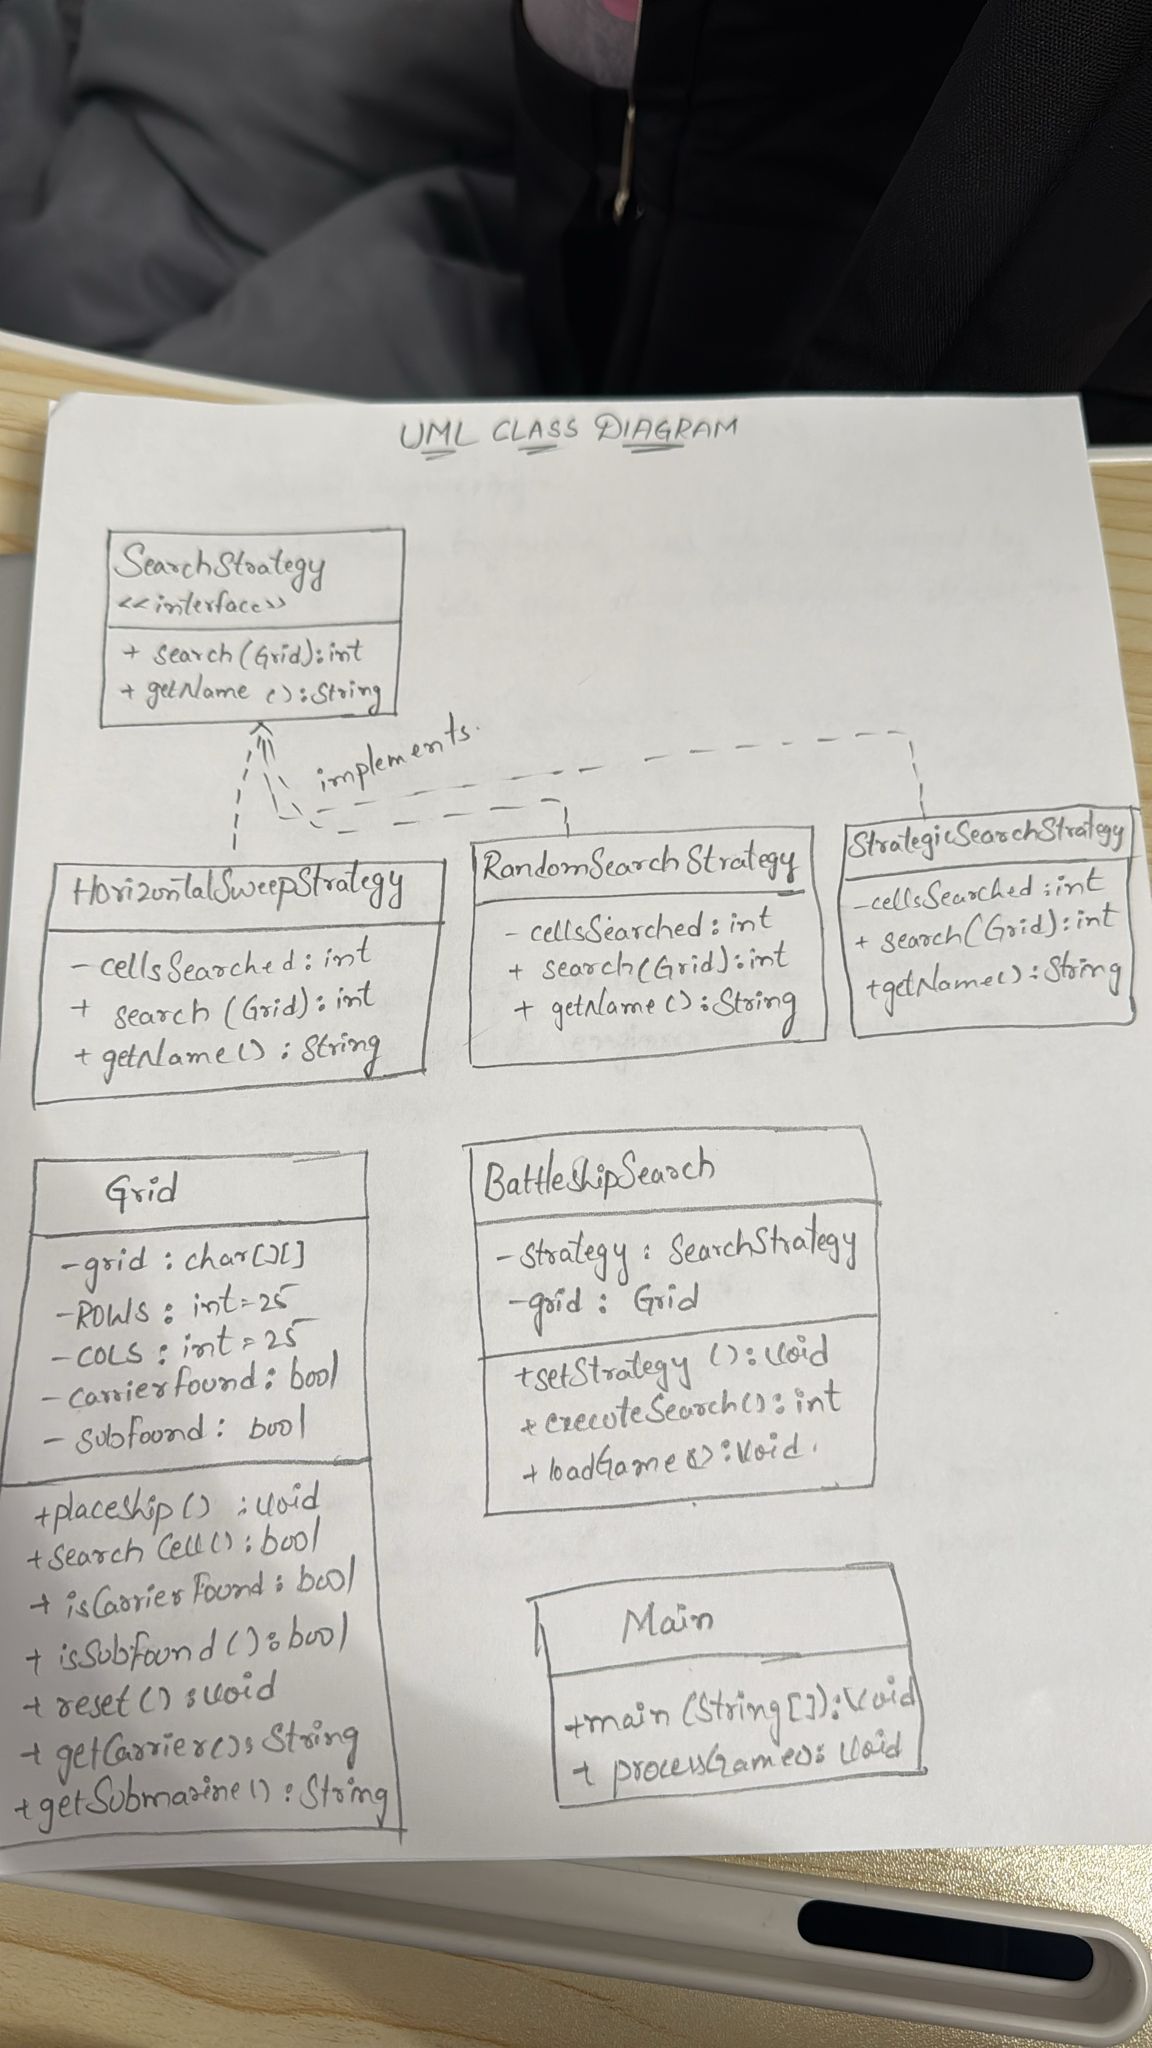 UML CLASS DIAGRAM
SearchStrategy
<<interface>>
+ search(Grid):int
+ getName ():String
implements.
HorizontalSweepStrategy
- cellsSearched: int
+ search (Grid): int
+ getName() : String
RandomSearchStrategy
- cellsSearched: int
+ search(Grid):int
+ getName():String
StrategicSearchStrategy
-cellsSearched:int
+ search(Grid):int
+getName():String
Grid
-grid : char[][]
-ROWS : int=25
-COLS : int=25
-carrierfound: bool
- subfound: bool
+placeship() :void
+search Cell(): bool
+ isCarrierFound: bool
+ isSubfound(): bool
+ reset():void
+ getCarrier(): String
+getSubmarine() : String
BattleshipSearch
-strategy: SearchStrategy
-grid: Grid
+setStrategy (): void
+executeSearch(): int
+loadGame():void.
Main
+main (String[]):void
+ processGame(): void